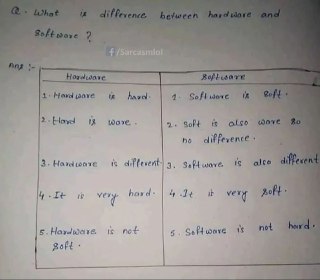 Q. What is difference between hardware and
Software ?
f /Sarcasmlol
Ans :-
Hardware
Software
1. Hard ware is hard.
1. Soft ware is soft.
2. Hard is ware.
2. Soft is also ware so
no difference.
3. Hardware is different.
3. Software is also different
4. It is very hard.
4. It is very soft.
5. Hardware is not
soft.
5. Software is not hard.